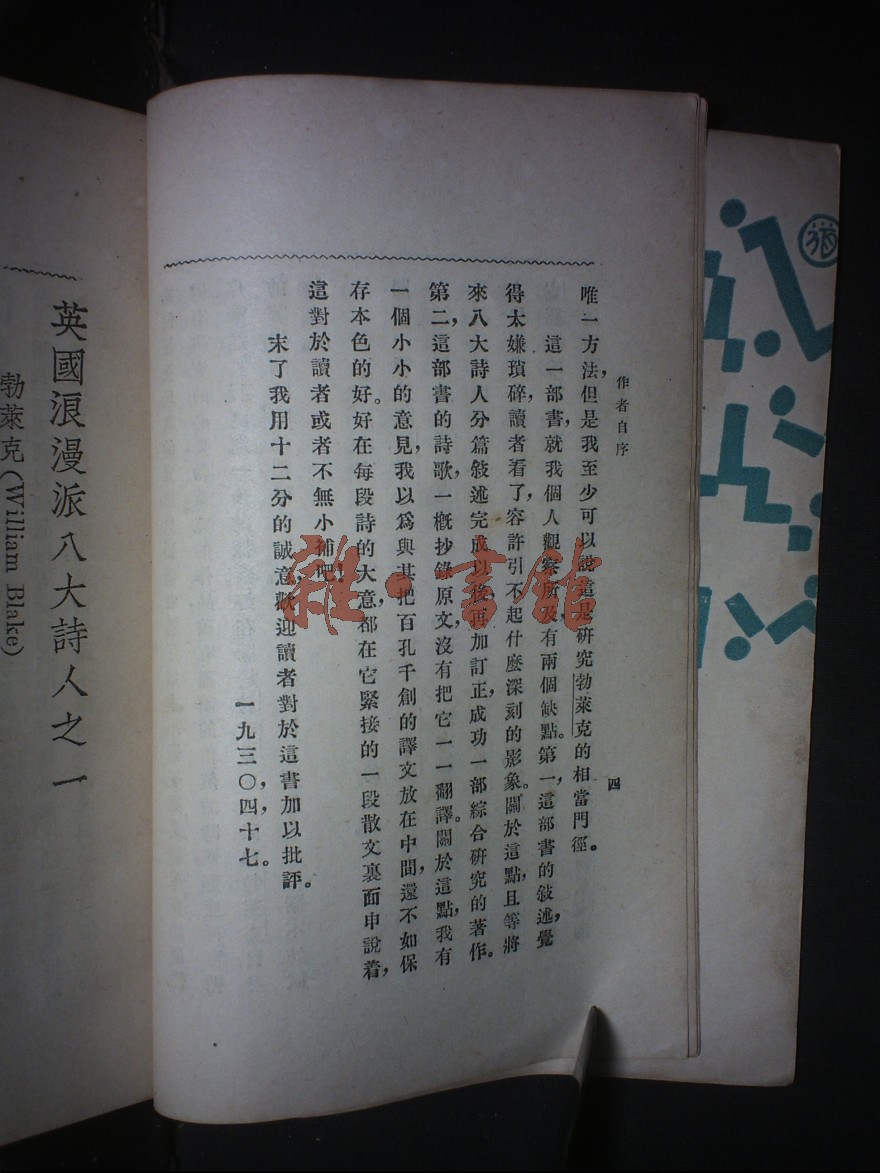 作者自序
四
唯一方法，但是我至少可以說這是研究勃萊克的相當門徑。
這一部書，就我個人觀察所及有兩個缺點。第一，這部書的敍述，覺
得太嫌瑣碎，讀者看了，容許引不起什麽深刻的影象。關於這點，且等將
來八大詩人分篇敍述完成以後，再加訂正，成功一部綜合研究的著作。
第二，這部書的詩歌，一概抄錄原文，沒有把它一一翻譯。關於這點，我有
一個小小的意見，我以爲與其把百孔千創的譯文放在中間，還不如保
存本色的好。好在每段詩的大意，都在它緊接的一段散文裏面申說着，
這對於讀者或者不無小補吧！
末了我用十二分的誠意，歡迎讀者對於這書加以批評。
一九三〇，四，十七。
英國浪漫派八大詩人之一
勃萊克(William Blake)
雜·書館